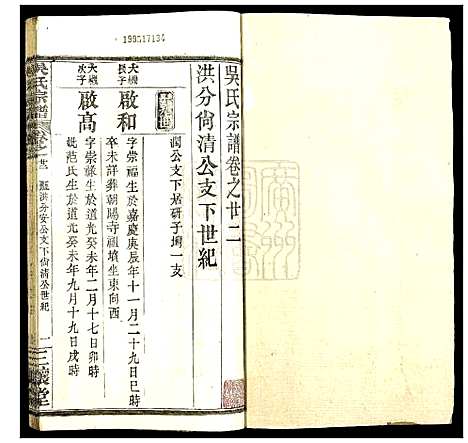 19951713
吳氏宗譜卷之廿二
洪分尙清公支下世紀
潤公支下居研子塆一支
大機長子
啟和
字崇福生於嘉慶庚辰年十一月二十九日巳時
卒未詳葬朝陽寺祖墳坐東向西
大機次子
啟高
字崇祿生於道光癸未年二月十七日卯時
娶范氏生於道光癸未年九月十九日戌時
吳氏宗譜
卷之廿二
洪分安公支下尙清公世紀
一
三讓堂